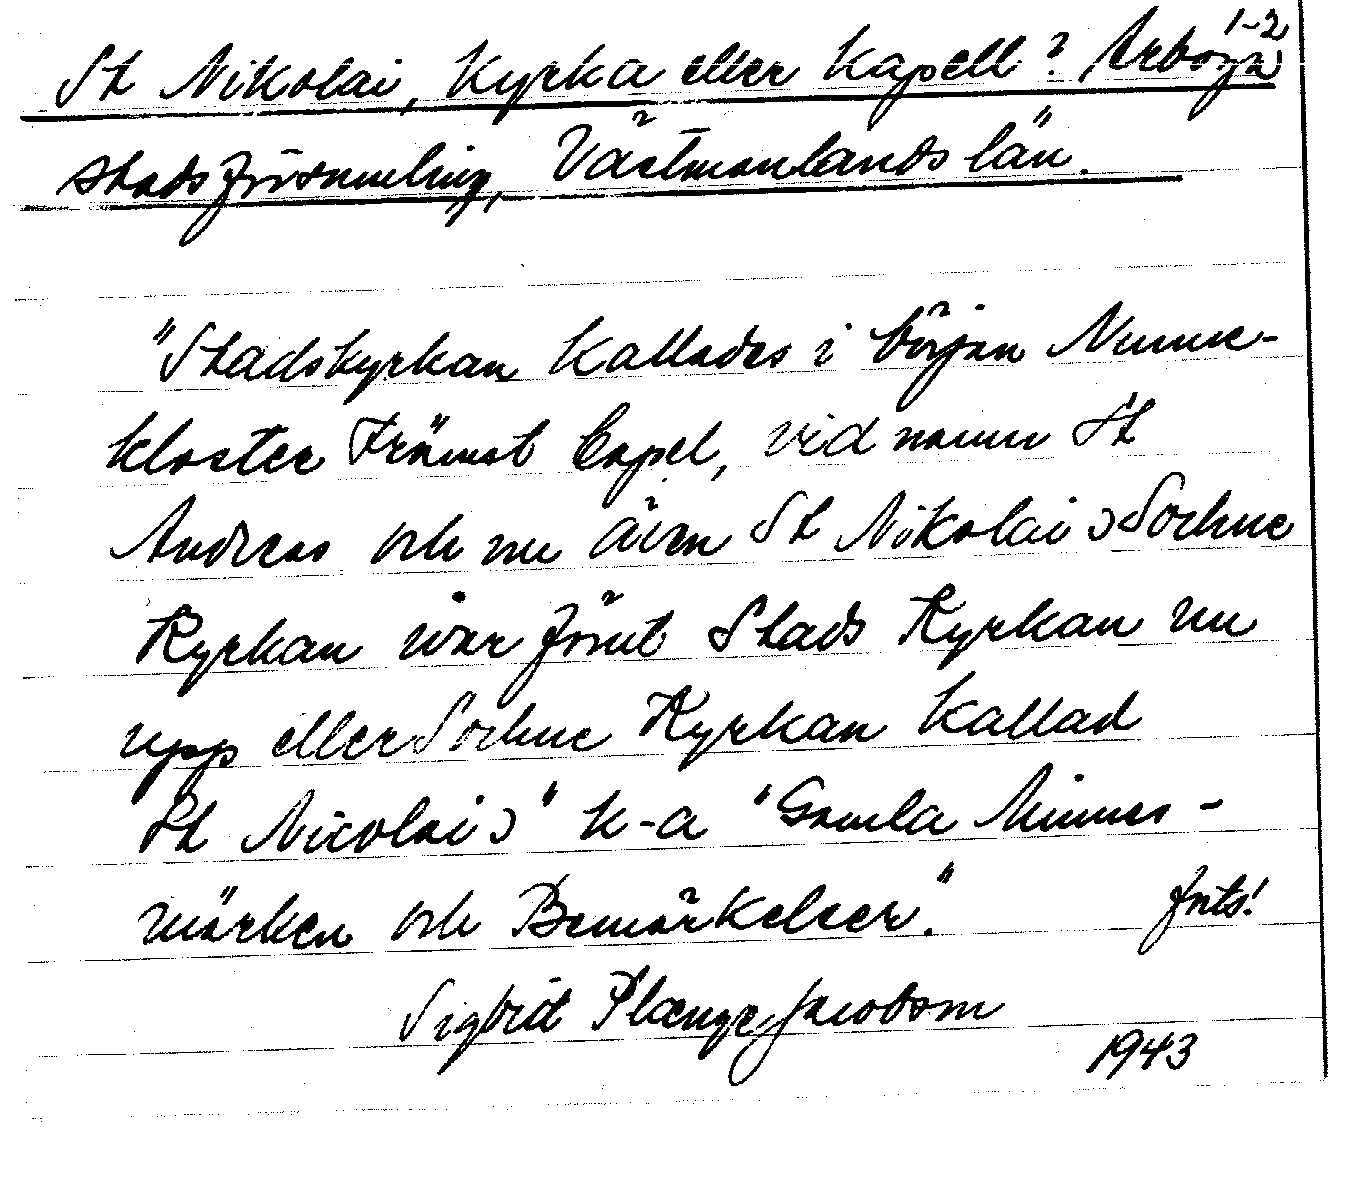 1-2
St Nikolai, Kyrka eller Kapell? Arboga
stadsförsamling, Västmanlands län.
"Stadskyrkan Kallades i början Nunne-
kloster Främst Capel, vid namn St
Andreas och nu även St Nikolai) Sochne
Kyrkan war förut Stads Kyrkan nu
upp eller Sochne Kyrkan Kallad
St Nicolai)" k-a "Gamla Minnes-
märken och Bemärkelser."
forts!
Sigbrit Plænge Jacobson
1943